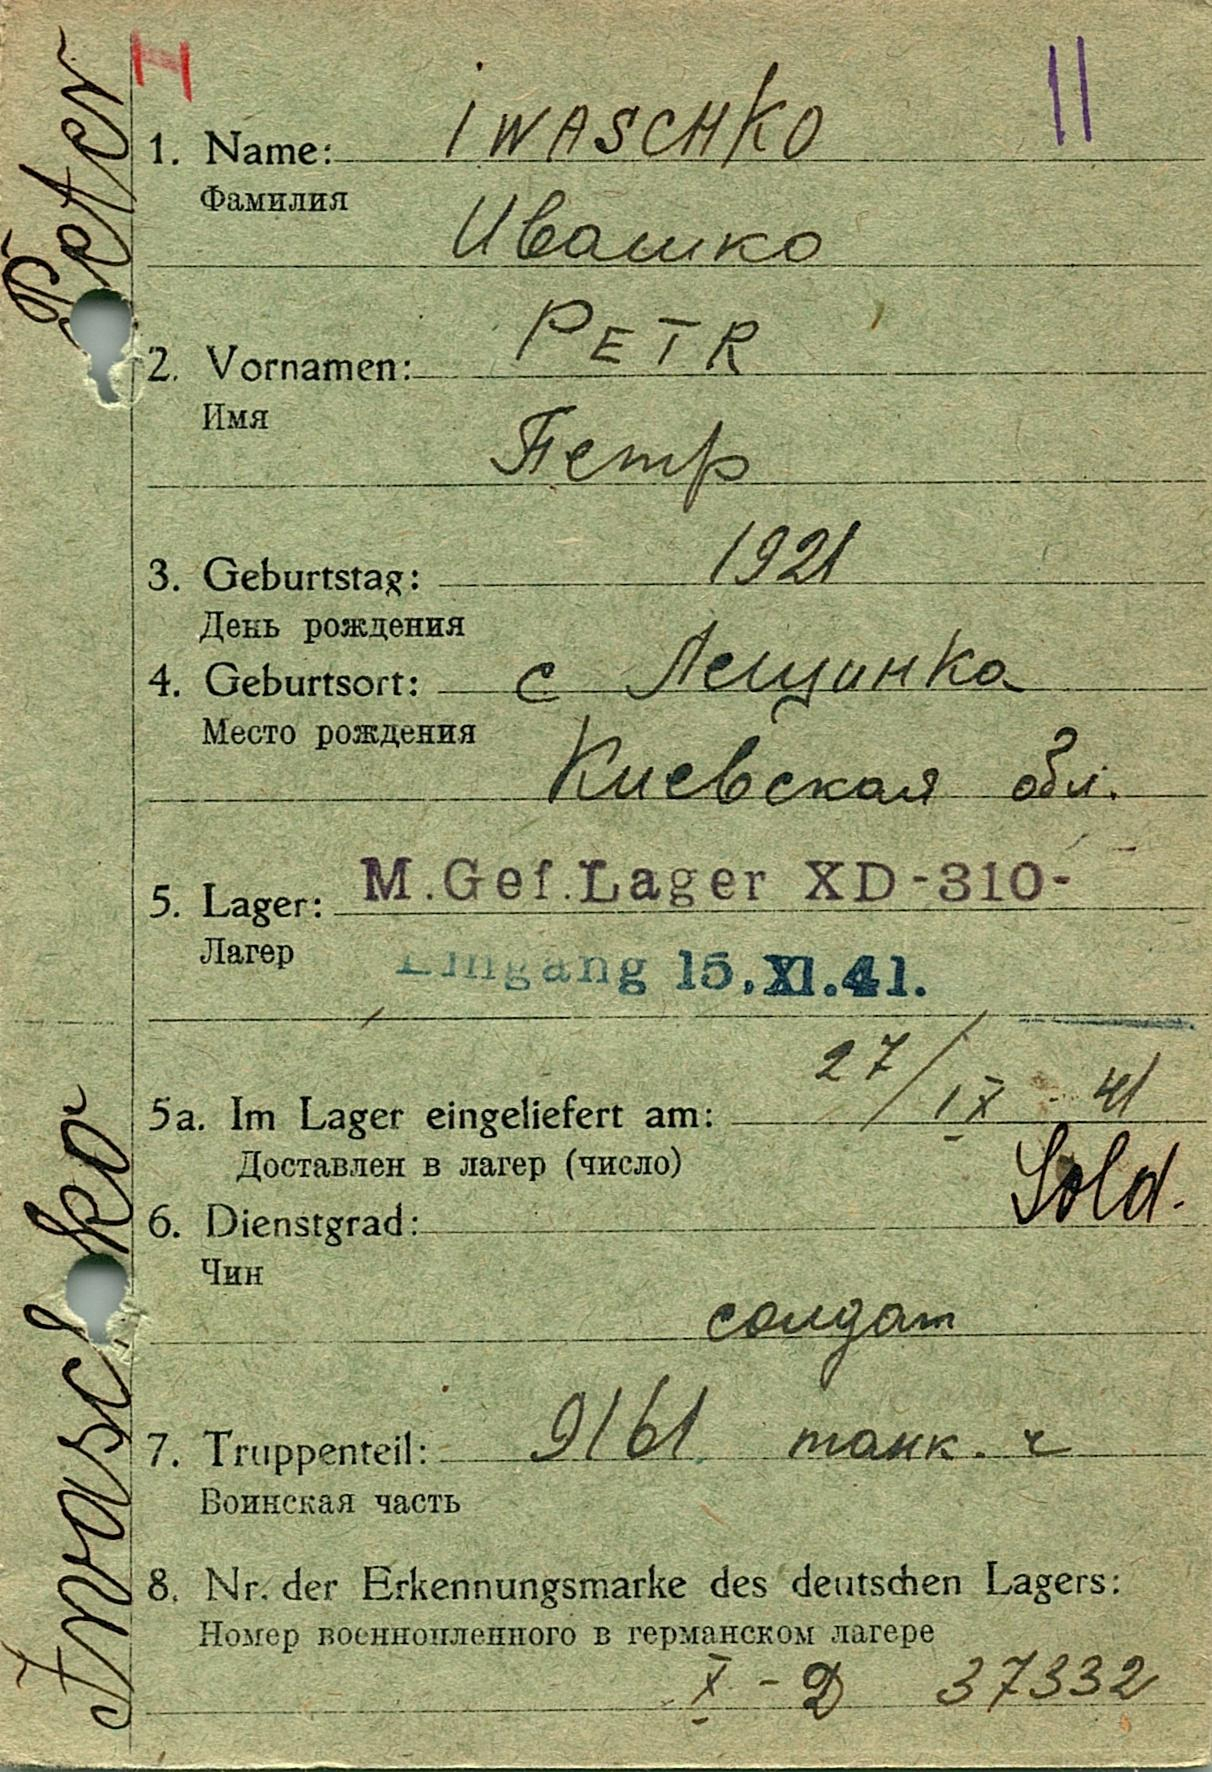 H
II
1. Name: IWASCHKO
Фамилия
Ивашко
2. Vornamen: PETR
Имя
Петр
3. Geburtstag: 1921
День рождения
4. Geburtsort: с Лещинка
Место рождения
Киевская обл.
5. Lager: M.Gef.Lager XD-310-
Лагер
Eingang 15.XI.41.
5a. Im Lager eingeliefert am: 27/IX - 41
Доставлен в лагер (число)
Sold.
6. Dienstgrad:
Чин
солдат
7. Truppenteil: 9161 танк. ч
Воинская часть
8. Nr. der Erkennungsmarke des deutschen Lagers:
Номер военнопленного в германском лагере
X - D 37332
Iwaschko Peter